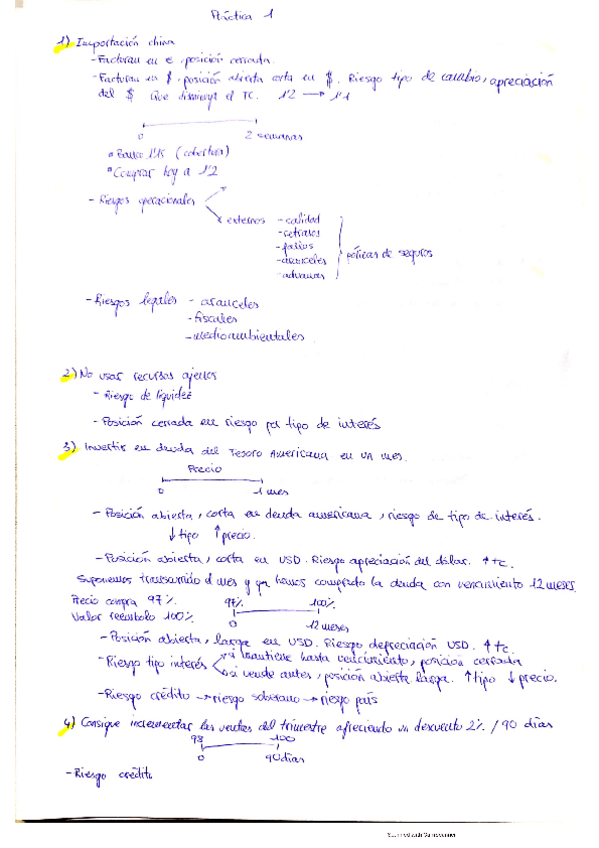 Práctica 1
1) Importación china
- Facturan en € posición cerrada.
- Facturan en $, posición abierta corta en $. Riesgo tipo de cambio, apreciación
del $ Que disminuye el TC. 1'2 → 1'1
0 2 semanas
• Banco 1'15 (cobertura)
• Comprar hoy a 1'2
- Riesgos operacionales
externos - calidad
- retrasos
- fallos
- aranceles
- aduanas
pólizas de seguros
- Riesgos legales - aranceles
- fiscales
- medioambientales
2) No usar recursos ajenos
- Riesgo de liquidez
- Posición cerrada en riesgo por tipo de interés
3) Invertir en deuda del Tesoro Americana en un mes.
Precio
0 1 mes
- Posición abierta, corta en deuda americana, riesgo de tipo de interés.
↓ tipo ↑ precio.
- Posición abierta, corta en USD. Riesgo apreciación del dólar. ↑ tc.
Suponemos transcurrido el mes y ya hemos comprado la deuda con vencimiento 12 meses.
Precio compra 97% 97% 100%
Valor reembolso 100% 0 12 meses
- Posición abierta, larga en USD. Riesgo depreciación USD. ↑ tc
- Riesgo tipo interés si mantiene hasta vencimiento, posición cerrada
si vende antes, posición abierta larga. ↑ tipo ↓ precio.
- Riesgo crédito → riesgo soberano → riesgo país
4) Consigue incrementar las ventas del trimestre ofreciendo un descuento 2% / 90 días
98 100
0 90 días
- Riesgo crédito